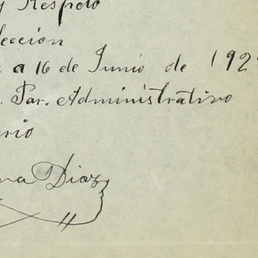 y Respeto
lección
a 16 de Junio de 192
Par. Administrativo
ario
na Diaz